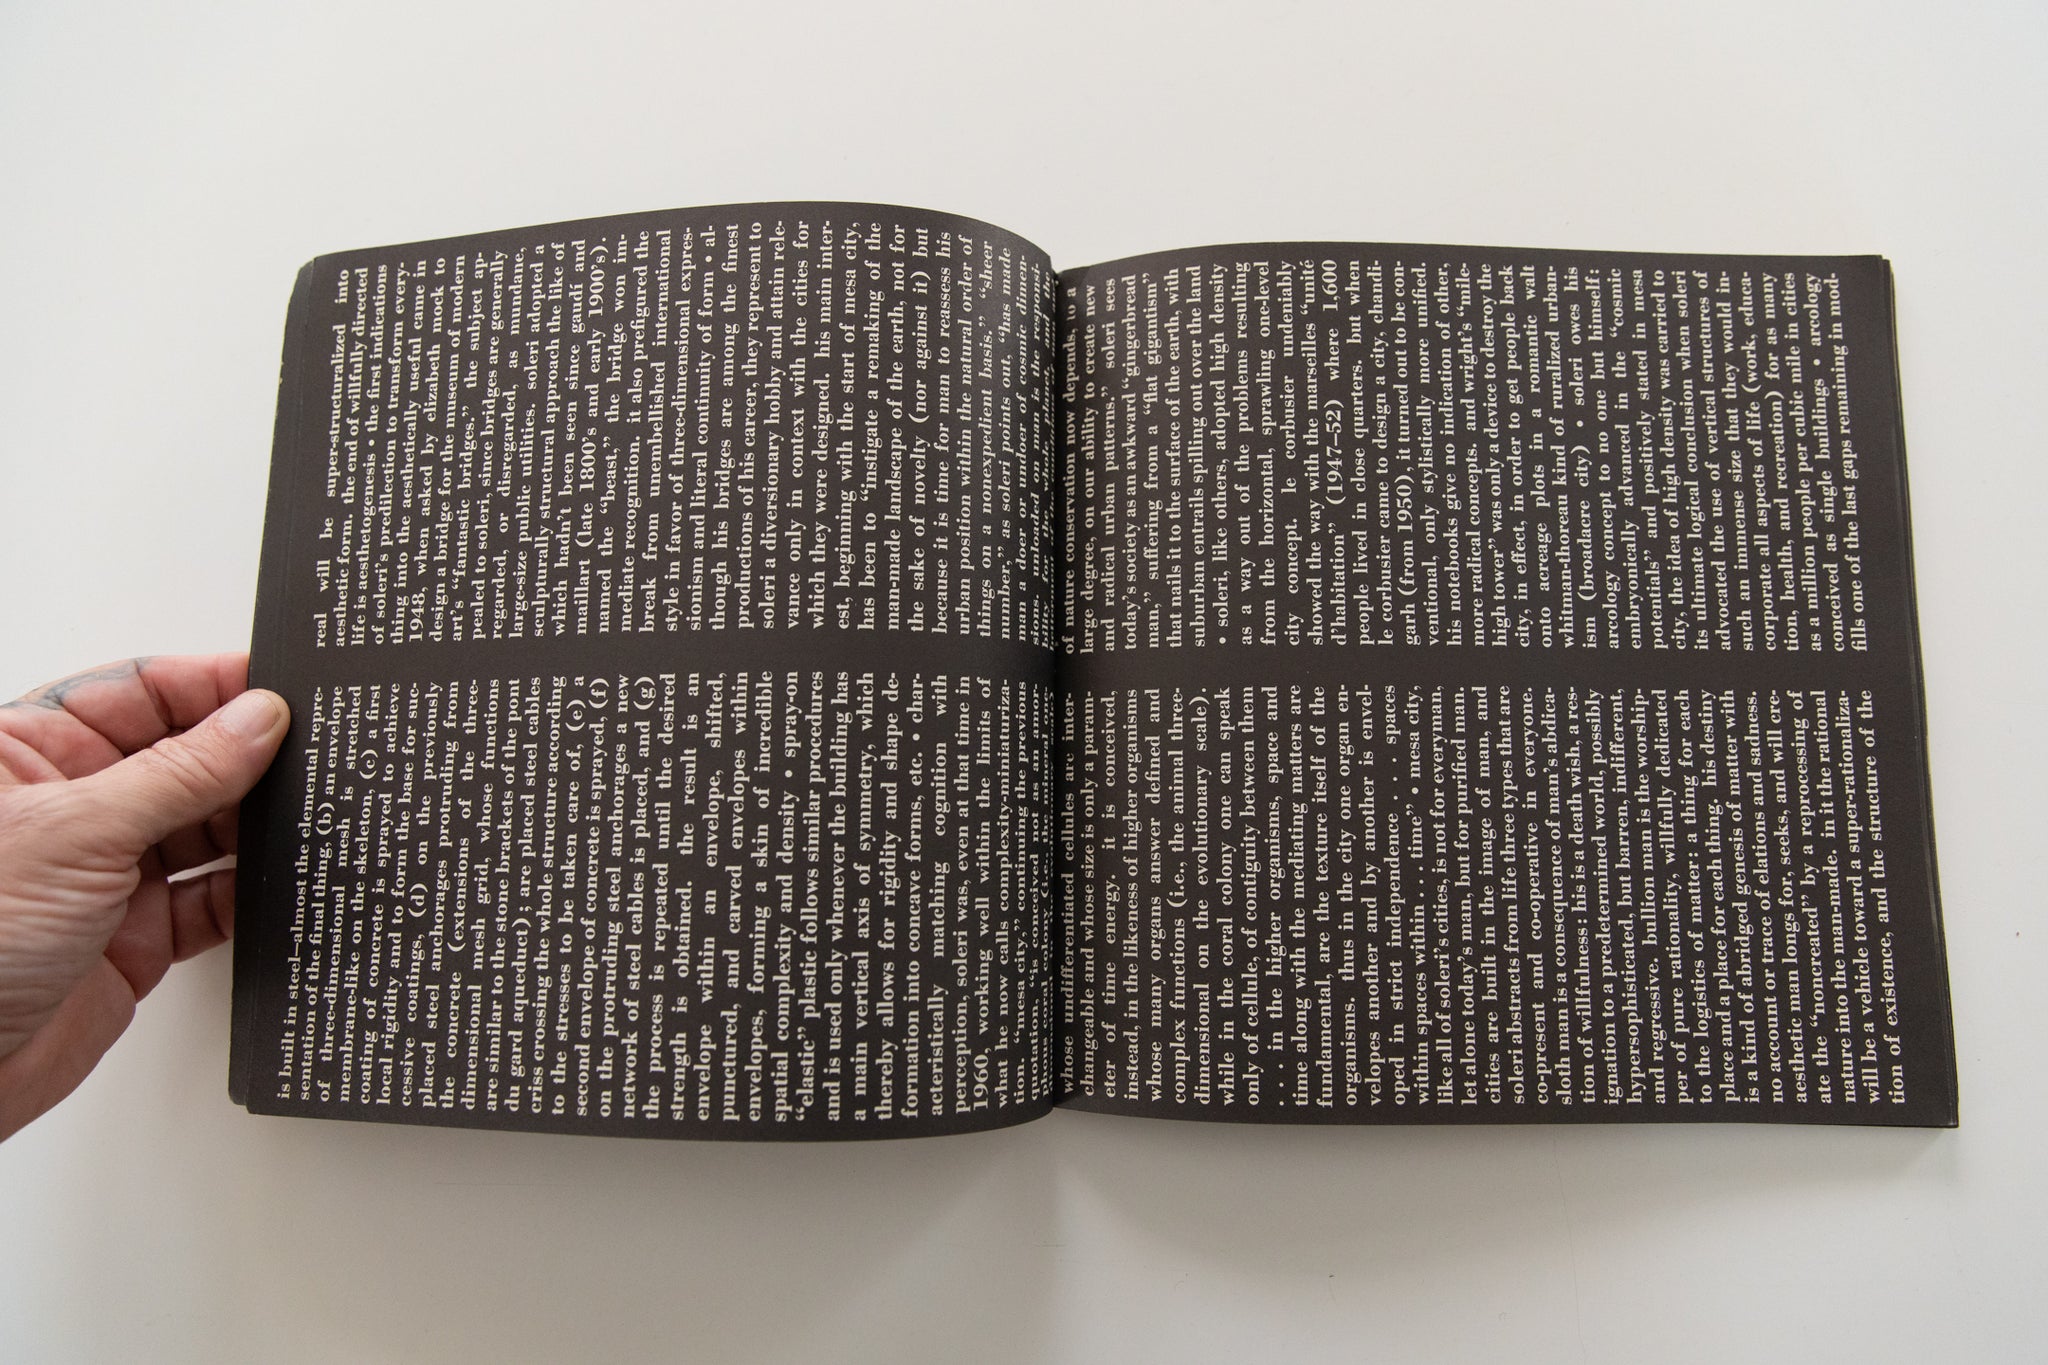 is built in steel—almost the elemental repre-
sentation of the final thing, (b) an envelope
of three-dimensional mesh is stretched
membrane-like on the skeleton, (c) a first
coating of concrete is sprayed to achieve
local rigidity and to form the base for suc-
cessive coatings, (d) on the previously
placed steel anchorages protruding from
the concrete (extensions of the three-
dimensional mesh grid, whose functions
are similar to the stone brackets of the pont
du gard aqueduct); are placed steel cables
criss crossing the whole structure according
to the stresses to be taken care of, (e) a
second envelope of concrete is sprayed, (f)
on the protruding steel anchorages a new
network of steel cables is placed, and (g)
the process is repeated until the desired
strength is obtained. the result is an
envelope within an envelope, shifted,
punctured, and carved envelopes within
envelopes, forming a skin of incredible
spatial complexity and density • spray-on
“elastic” plastic follows similar procedures
and is used only whenever the building has
a main vertical axis of symmetry, which
thereby allows for rigidity and shape de-
formation into concave forms, etc. • char-
acteristically matching cognition with
perception, soleri was, even at that time in
1960, working well within the limits of
what he now calls complexity-miniaturiza-
tion. “mesa city,” continuing the previous
quotation, “is conceived not as an amor-
plus coral colony (i.e., the
whose undifferentiated cellules are inter-
changeable and whose size is only a param-
eter of time energy. it is conceived,
instead, in the likeness of higher organisms
whose many organs answer defined and
complex functions (i.e., the animal three-
dimensional on the evolutionary scale).
while in the coral colony one can speak
only of cellule, of contiguity between them
. . . . in the higher organisms, space and
time along with the mediating matters are
fundamental, are the texture itself of the
organisms. thus in the city one organ en-
velopes another and by another is envel-
oped in strict independence . . . . spaces
within spaces within . . . . time” • mesa city,
like all of soleri’s cities, is not for everyman,
let alone today’s man, but for purified man.
cities are built in the image of man, and
soleri abstracts from life three types that are
co-present and co-operative in everyone.
sloth man is a consequence of man’s abdica-
tion of willfulness: his is a death wish, a res-
ignation to a predetermined world, possibly
hypersophisticated, but barren, indifferent,
and regressive. billion man is the worship-
per of pure rationality, willfully dedicated
to the logistics of matter: a thing for each
place and a place for each thing. his destiny
is a kind of abridged genesis of matter with
no account or trace of elations and sadness.
aesthetic man longs for, seeks, and will cre-
ate the “noncreated” by a reprocessing of
nature into the man-made. in it the rational
will be a vehicle toward a super-rationaliza-
tion of existence, and the structure of the
real will be super-structuralized into
aesthetic form. the end of willfully directed
life is aesthetogenesis • the first indications
of soleri’s predilection to transform every-
thing into the aesthetically useful came in
1948, when asked by elizabeth mock to
design a bridge for the museum of modern
art’s “fantastic bridges,” the subject ap-
pealed to soleri, since bridges are generally
regarded, or disregarded, as mundane,
large-size public utilities. soleri adopted a
sculpturally structural approach the like of
which hadn’t been seen since gaudí and
maillart (late 1800’s and early 1900’s).
named the “beast,” the bridge won im-
mediate recognition. it also prefigured the
break from unembellished international
style in favor of three-dimensional expres-
sionism and literal continuity of form • al-
though his bridges are among the finest
productions of his career, they represent to
soleri a diversionary hobby and attain rele-
vance only in context with the cities for
which they were designed. his main inter-
est, beginning with the start of mesa city,
has been to “instigate a remaking of the
man-made landscape of the earth, not for
the sake of novelty (nor against it) but
because it is time for man to reassess his
urban position within the natural order of
things on a nonexpedient basis.” “sheer
number,” as soleri points out, “has made
man a doer and undoer of cosmic dimen-
sions. unloaded on him is the responsi-
bility for the whole planet, and the
of nature conservation now depends, to a
large degree, on our ability to create new
and radical urban patterns.” soleri sees
today’s society as an awkward “gingerbread
man,” suffering from a “flat gigantism”
that nails it to the surface of the earth, with
suburban entrails spilling out over the land
• soleri, like others, adopted high density
as a way out of the problems resulting
from the horizontal, sprawling one-level
city concept. le corbusier undeniably
showed the way with the marseilles “unité
d’habitation” (1947–52) where 1,600
people lived in close quarters. but when
le corbusier came to design a city, chandi-
garh (from 1950), it turned out to be con-
ventional, only stylistically more unified.
his notebooks give no indication of other,
more radical concepts. and wright’s “mile-
high tower” was only a device to destroy the
city, in effect, in order to get people back
onto acreage plots in a romantic walt
whitman-thoreau kind of ruralized urban-
ism (broadacre city) • soleri owes his
arcology concept to no one but himself:
embryonically advanced in the “cosmic
potentials” and positively stated in mesa
city, the idea of high density was carried to
its ultimate logical conclusion when soleri
advocated the use of vertical structures of
such an immense size that they would in-
corporate all aspects of life (work, educa-
tion, health, and recreation) for as many
as a million people per cubic mile in cities
conceived as single buildings • arcology
fills one of the last gaps remaining in mod-